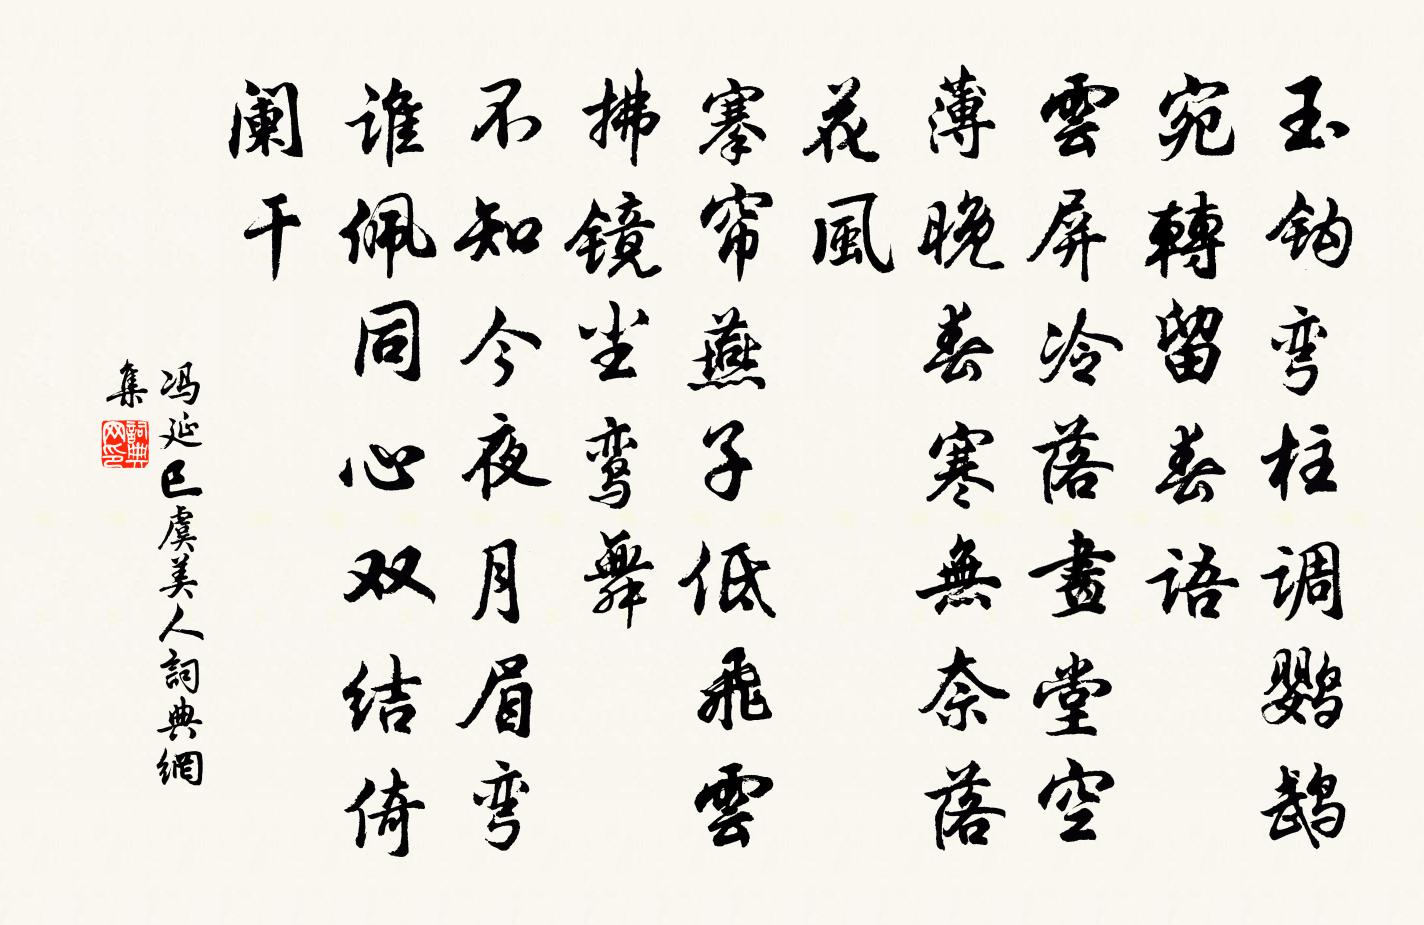 玉钩弯柱调鹦鹉
宛轉留春语
雲屏冷落畫堂空
薄晚春寒無奈落
花風
搴帘燕子低飛雲
拂镜尘鸾舞
不知今夜月眉弯
谁佩同心双结倚
阑干
冯延巳虞美人詞典網
集
詞典网印